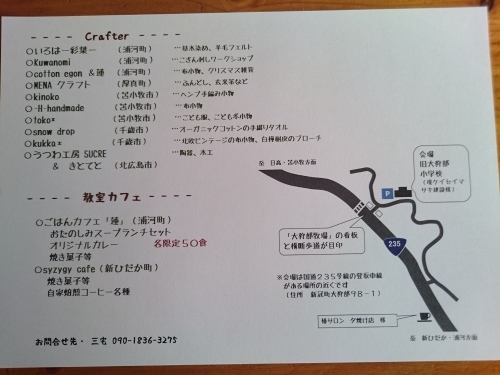 ---- Crafter ----
○いろは－彩葉－ （浦河町） …草木染め、羊毛フェルト
○Kuwanomi （浦河町） …こぎん刺しワークショップ
○cotton egon &蓮 （浦河町） …布小物、クリスマス雑貨
○MENA クラフト （厚真町） …ふんどし、玄米茶など
○kinoko （苫小牧市） …ヘンプ手編み小物
○-H-handmade （苫小牧市） …布小物
○toko* （苫小牧市） …こども服、こども冬小物
○snow drop （千歳市） …オーガニックコットンの手織りタオル
○kukka* （千歳市） …北欧ビンテージの布小物、白樺樹皮のブローチ
○うつわ工房 SUCRE …陶器、木工
& きとてと （北広島市）
---- 教室カフェ ----
○ごはんカフェ「蓮」（浦河町）
おたのしみスープランチセット
オリジナルカレー 各限定50食
焼き菓子等
○syzygy cafe（新ひだか町）
焼き菓子等
自家焙煎コーヒー各種
お問合せ先・ 三宅 090-1836-3275
至 日高・苫小牧方面
会場
旧大狩部
小学校
(現ケイセイマ
サキ建設様)
P
「大狩部牧場」の看板
と横断歩道が目印
235
※会場は国道235号線の登坂車線
がある場所の近くです
（住所 新冠町大狩部98-1）
椿サロン 夕焼け店 様
至 新ひだか・浦河方面